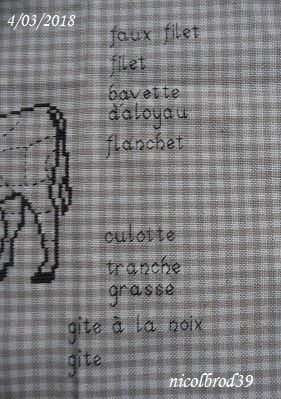 4/03/2018
faux filet
filet
bavette
d'aloyau
flanchet
culotte
tranche
grasse
gite à la noix
gite
nicolbrod39